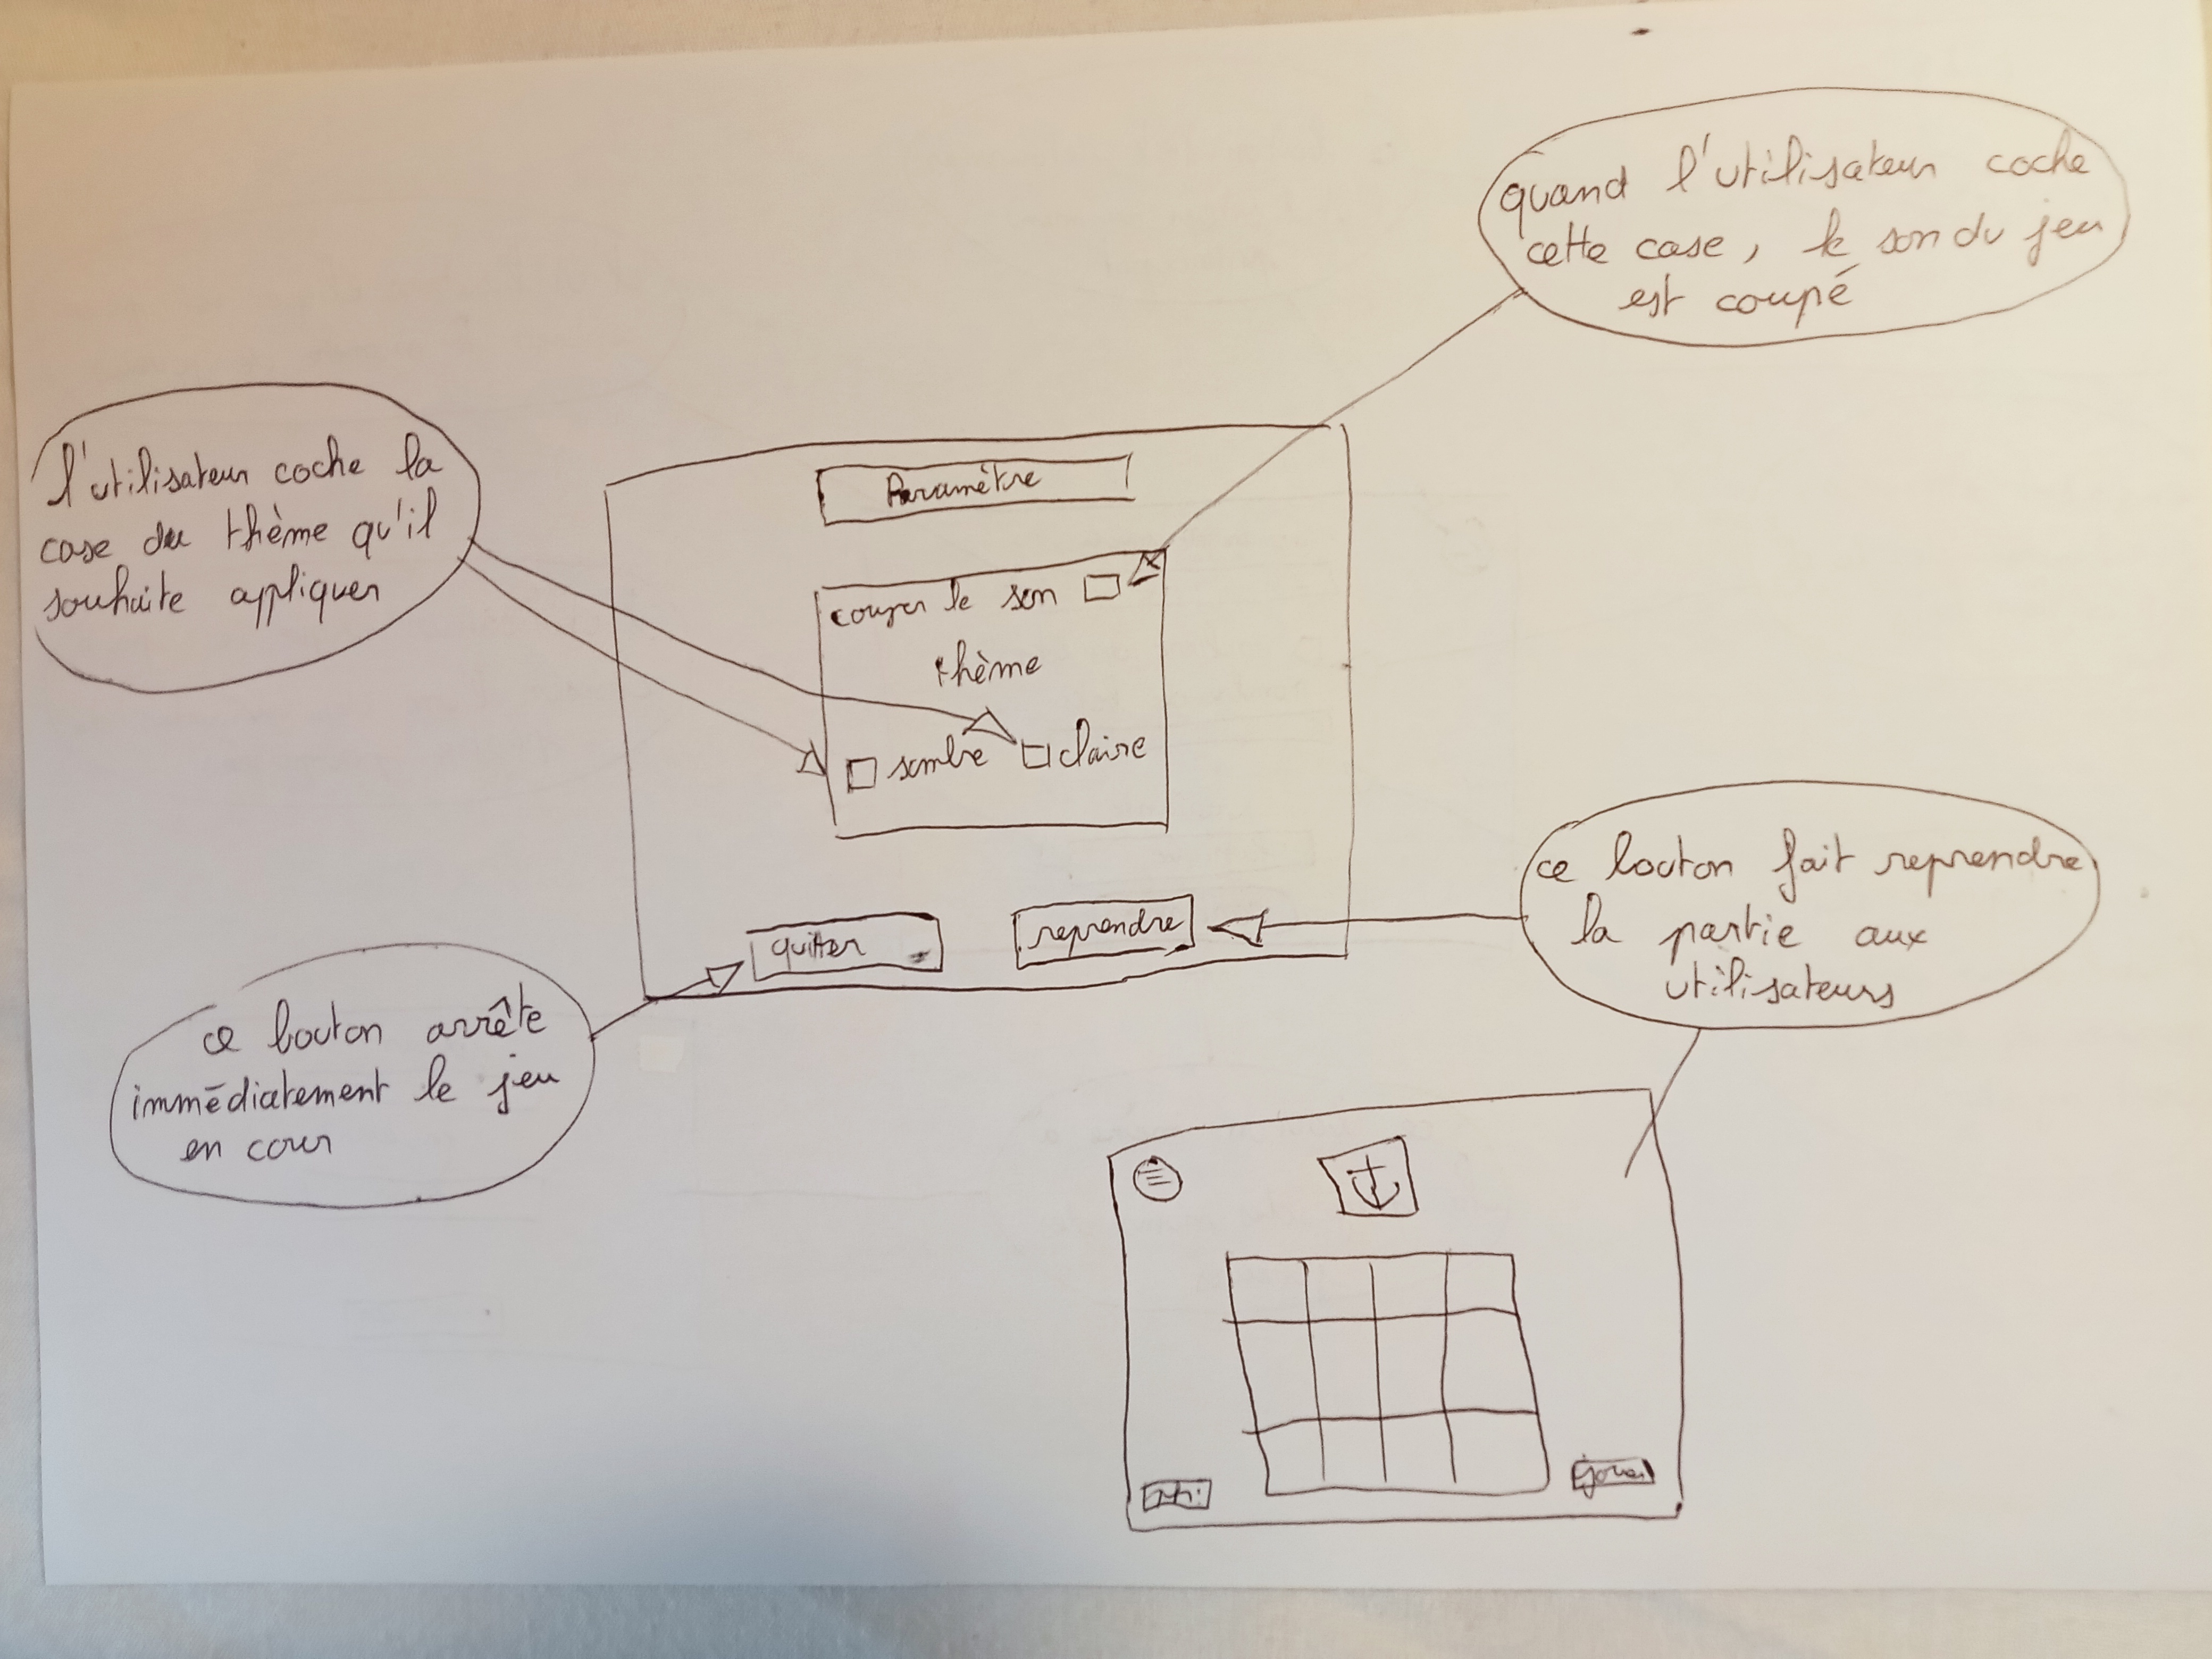 quand l'utilisateur coche
cette case, le son du jeu
est coupé
l'utilisateur coche la
case du thème qu'il
souhaite appliquer
Paramètre
couper le son
thème
sombre
claire
quitter
reprendre
ce bouton fait reprendre
la partie aux
utilisateurs
ce bouton arrête
immédiatement le jeu
en cour